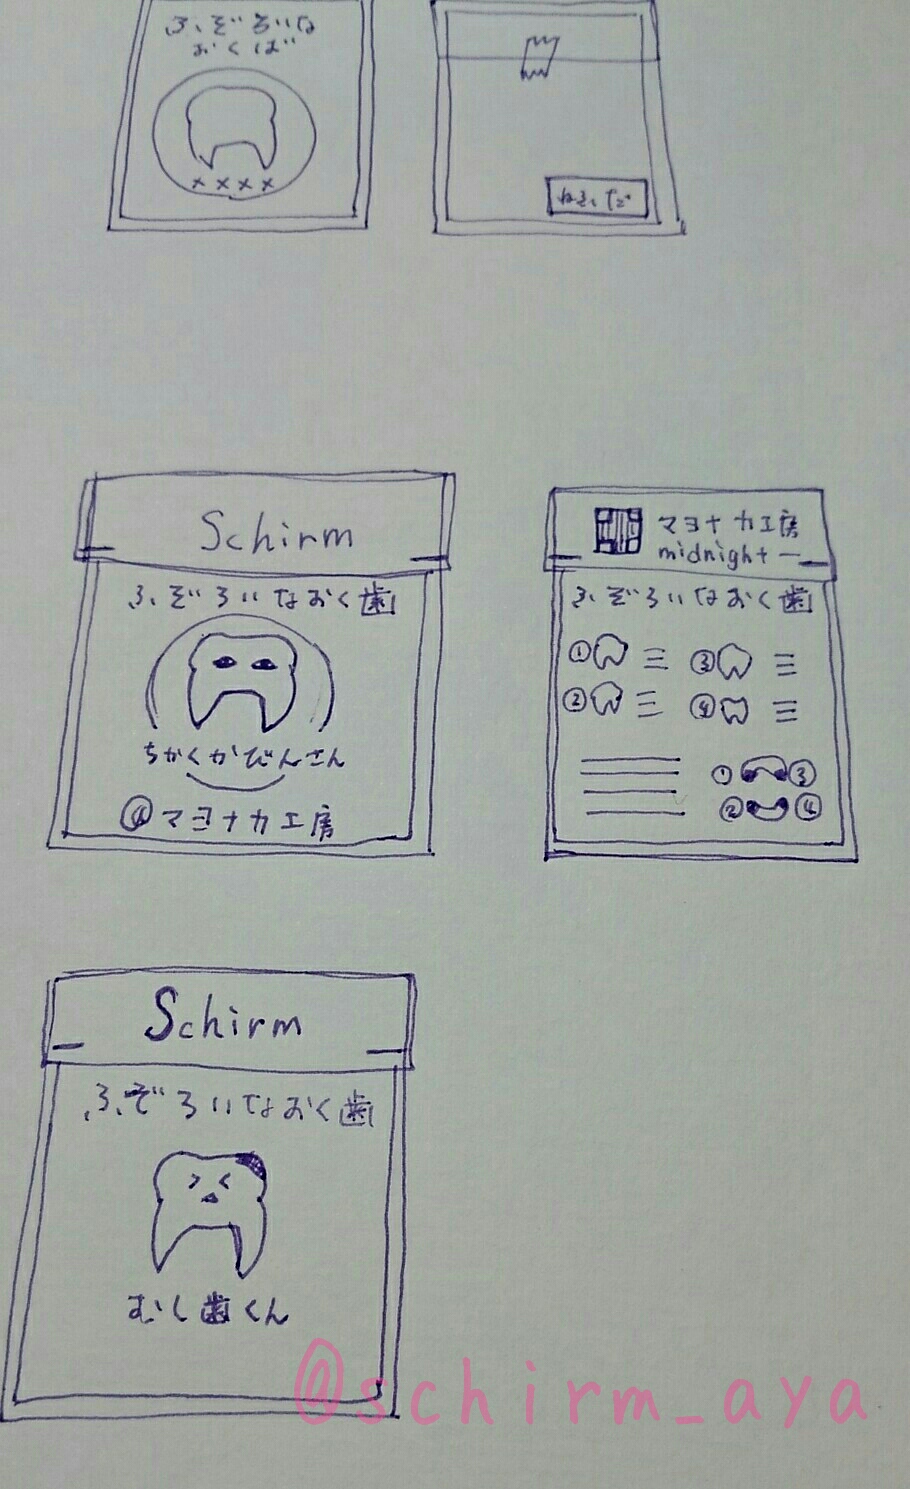 ふぞろいな
おくば
××××
ねだん など
Schirm
ふぞろいなおく歯
ちかくかびんさん
④マヨナカ工房
マヨナカ工房
midnight ー
ふぞろいなおく歯
① ③
② ④
① ③
② ④
Schirm
ふぞろいなおく歯
むし歯くん
@schirm_aya